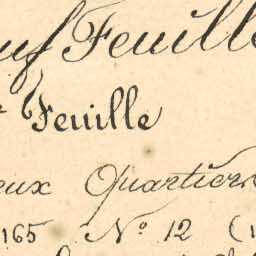 uf Feuille
Feuille
eux Quartiers
165 Nº 12 (1